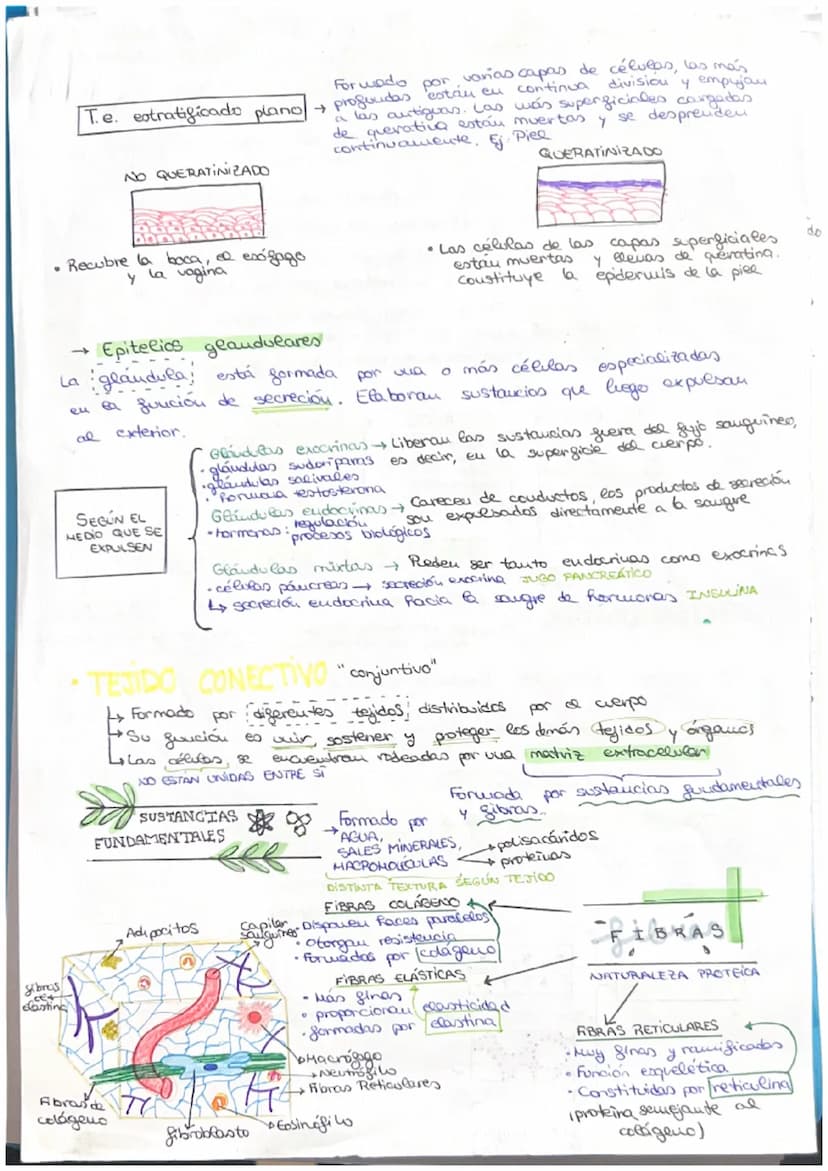 T.e. estratificado plano →
Formado por varias capas de células, las más
profundas están en continua división y empujan
a las antiguas. Las más superficiales cargadas
de queratina están muertas y se desprenden
continuamente. Ej. Piel
NO QUERATINIZADO
QUERATINIZADO
• Recubre la boca, el esófago
y la vagina
• Las células de las capas superficiales
están muertas y llenas de queratina.
Constituye la epidermis de la piel
do
→ Epitelios glandulares
La glándula está formada por una o más células especializadas
en la función de secreción. Elaboran sustancias que luego expulsan
al exterior.
SEGÚN EL
MEDIO QUE SE
EXPULSEN
Glándulas exocrinas → Liberan las sustancias fuera del flujo sanguíneo,
es decir, en la superficie del cuerpo.
• glándulas sudoríparas
• glándulas salivales
• Hormona testosterona
Glándulas endocrinas → Carecen de conductos, los productos de secreción
son expulsados directamente a la sangre
• hormonas: regulación
procesos biológicos
Glándulas mixtas → Pueden ser tanto endocrinas como exocrinas
• células páncreas → secreción exocrina JUGO PANCREÁTICO
↳ secreción endocrina hacia la sangre de hormonas INSULINA
• TEJIDO CONECTIVO "conjuntivo"
↳ Formado por diferentes tejidos distribuidos por el cuerpo
↳ Su función es unir, sostener y proteger los demás tejidos y órganos
↳ Las células se encuentran rodeadas por una matriz extracelular
NO ESTÁN UNIDAS ENTRE SÍ
Formada por sustancias fundamentales
y fibras.
SUSTANCIAS
FUNDAMENTALES
→ Formado por
AGUA,
SALES MINERALES,
MACROMOLÉCULAS
→ polisacáridos
→ proteínas
DISTINTA TEXTURA SEGÚN TEJIDO
FIBRAS
fibras
NATURALEZA PROTEICA
FIBRAS COLÁGENO
• Disponen haces paralelos
• Otorgan resistencia
• Formadas por colágeno
FIBRAS ELÁSTICAS
• Más finas
• proporcionan elasticidad
• formadas por elastina
FIBRAS RETICULARES
• Muy finas y ramificadas
• Función esquelética
• Constituidas por reticulina
(proteína semejante al
colágeno)
Adipocitos
Capilar
sanguíneo
fibras
de
elastina
Macrófago
Neutrófilo
Fibras Reticulares
Fibras de
colágeno
fibroblasto
Eosinófilo